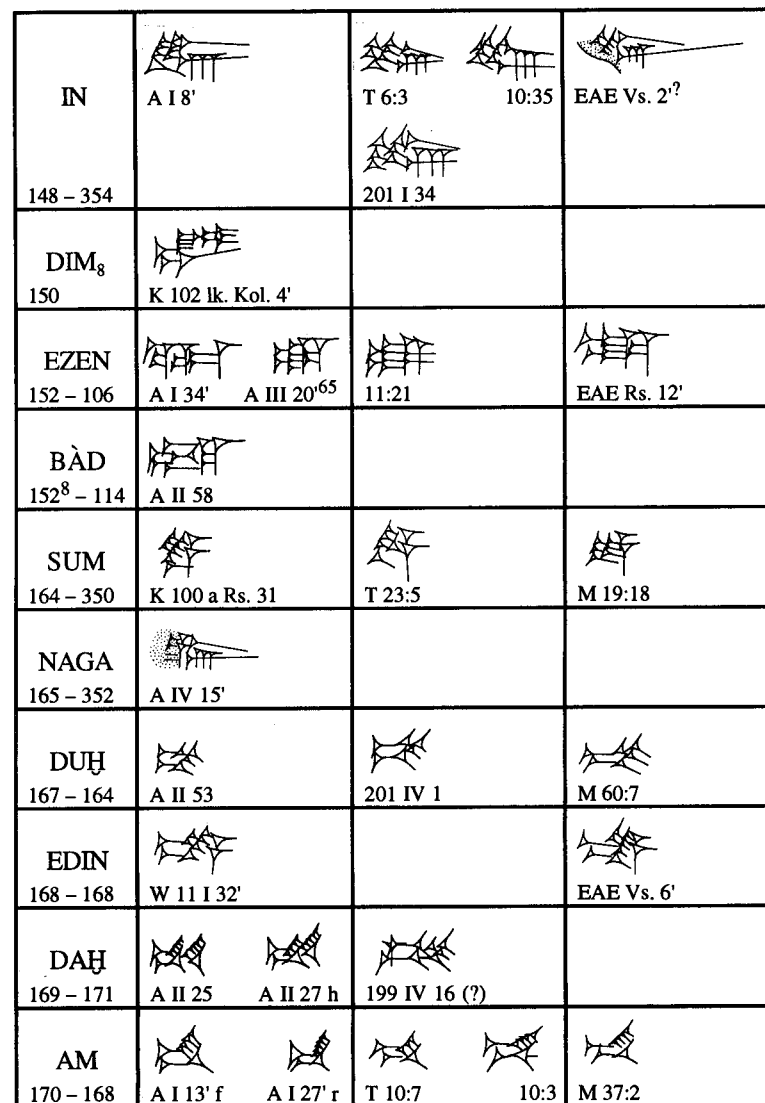 IN
148 – 354
A I 8'
T 6:3 10:35
201 I 34
EAE Vs. 2'?
DIM₈
150
K 102 lk. Kol. 4'
EZEN
152 – 106
A I 34' A III 20'⁶⁵
11:21
EAE Rs. 12'
BÀD
152⁸ – 114
A II 58
SUM
164 – 350
K 100 a Rs. 31
T 23:5
M 19:18
NAGA
165 – 352
A IV 15'
DUḪ
167 – 164
A II 53
201 IV 1
M 60:7
EDIN
168 – 168
W 11 I 32'
EAE Vs. 6'
DAḪ
169 – 171
A II 25 A II 27 h
199 IV 16 (?)
AM
170 – 168
A I 13' f A I 27' r
T 10:7 10:3
M 37:2